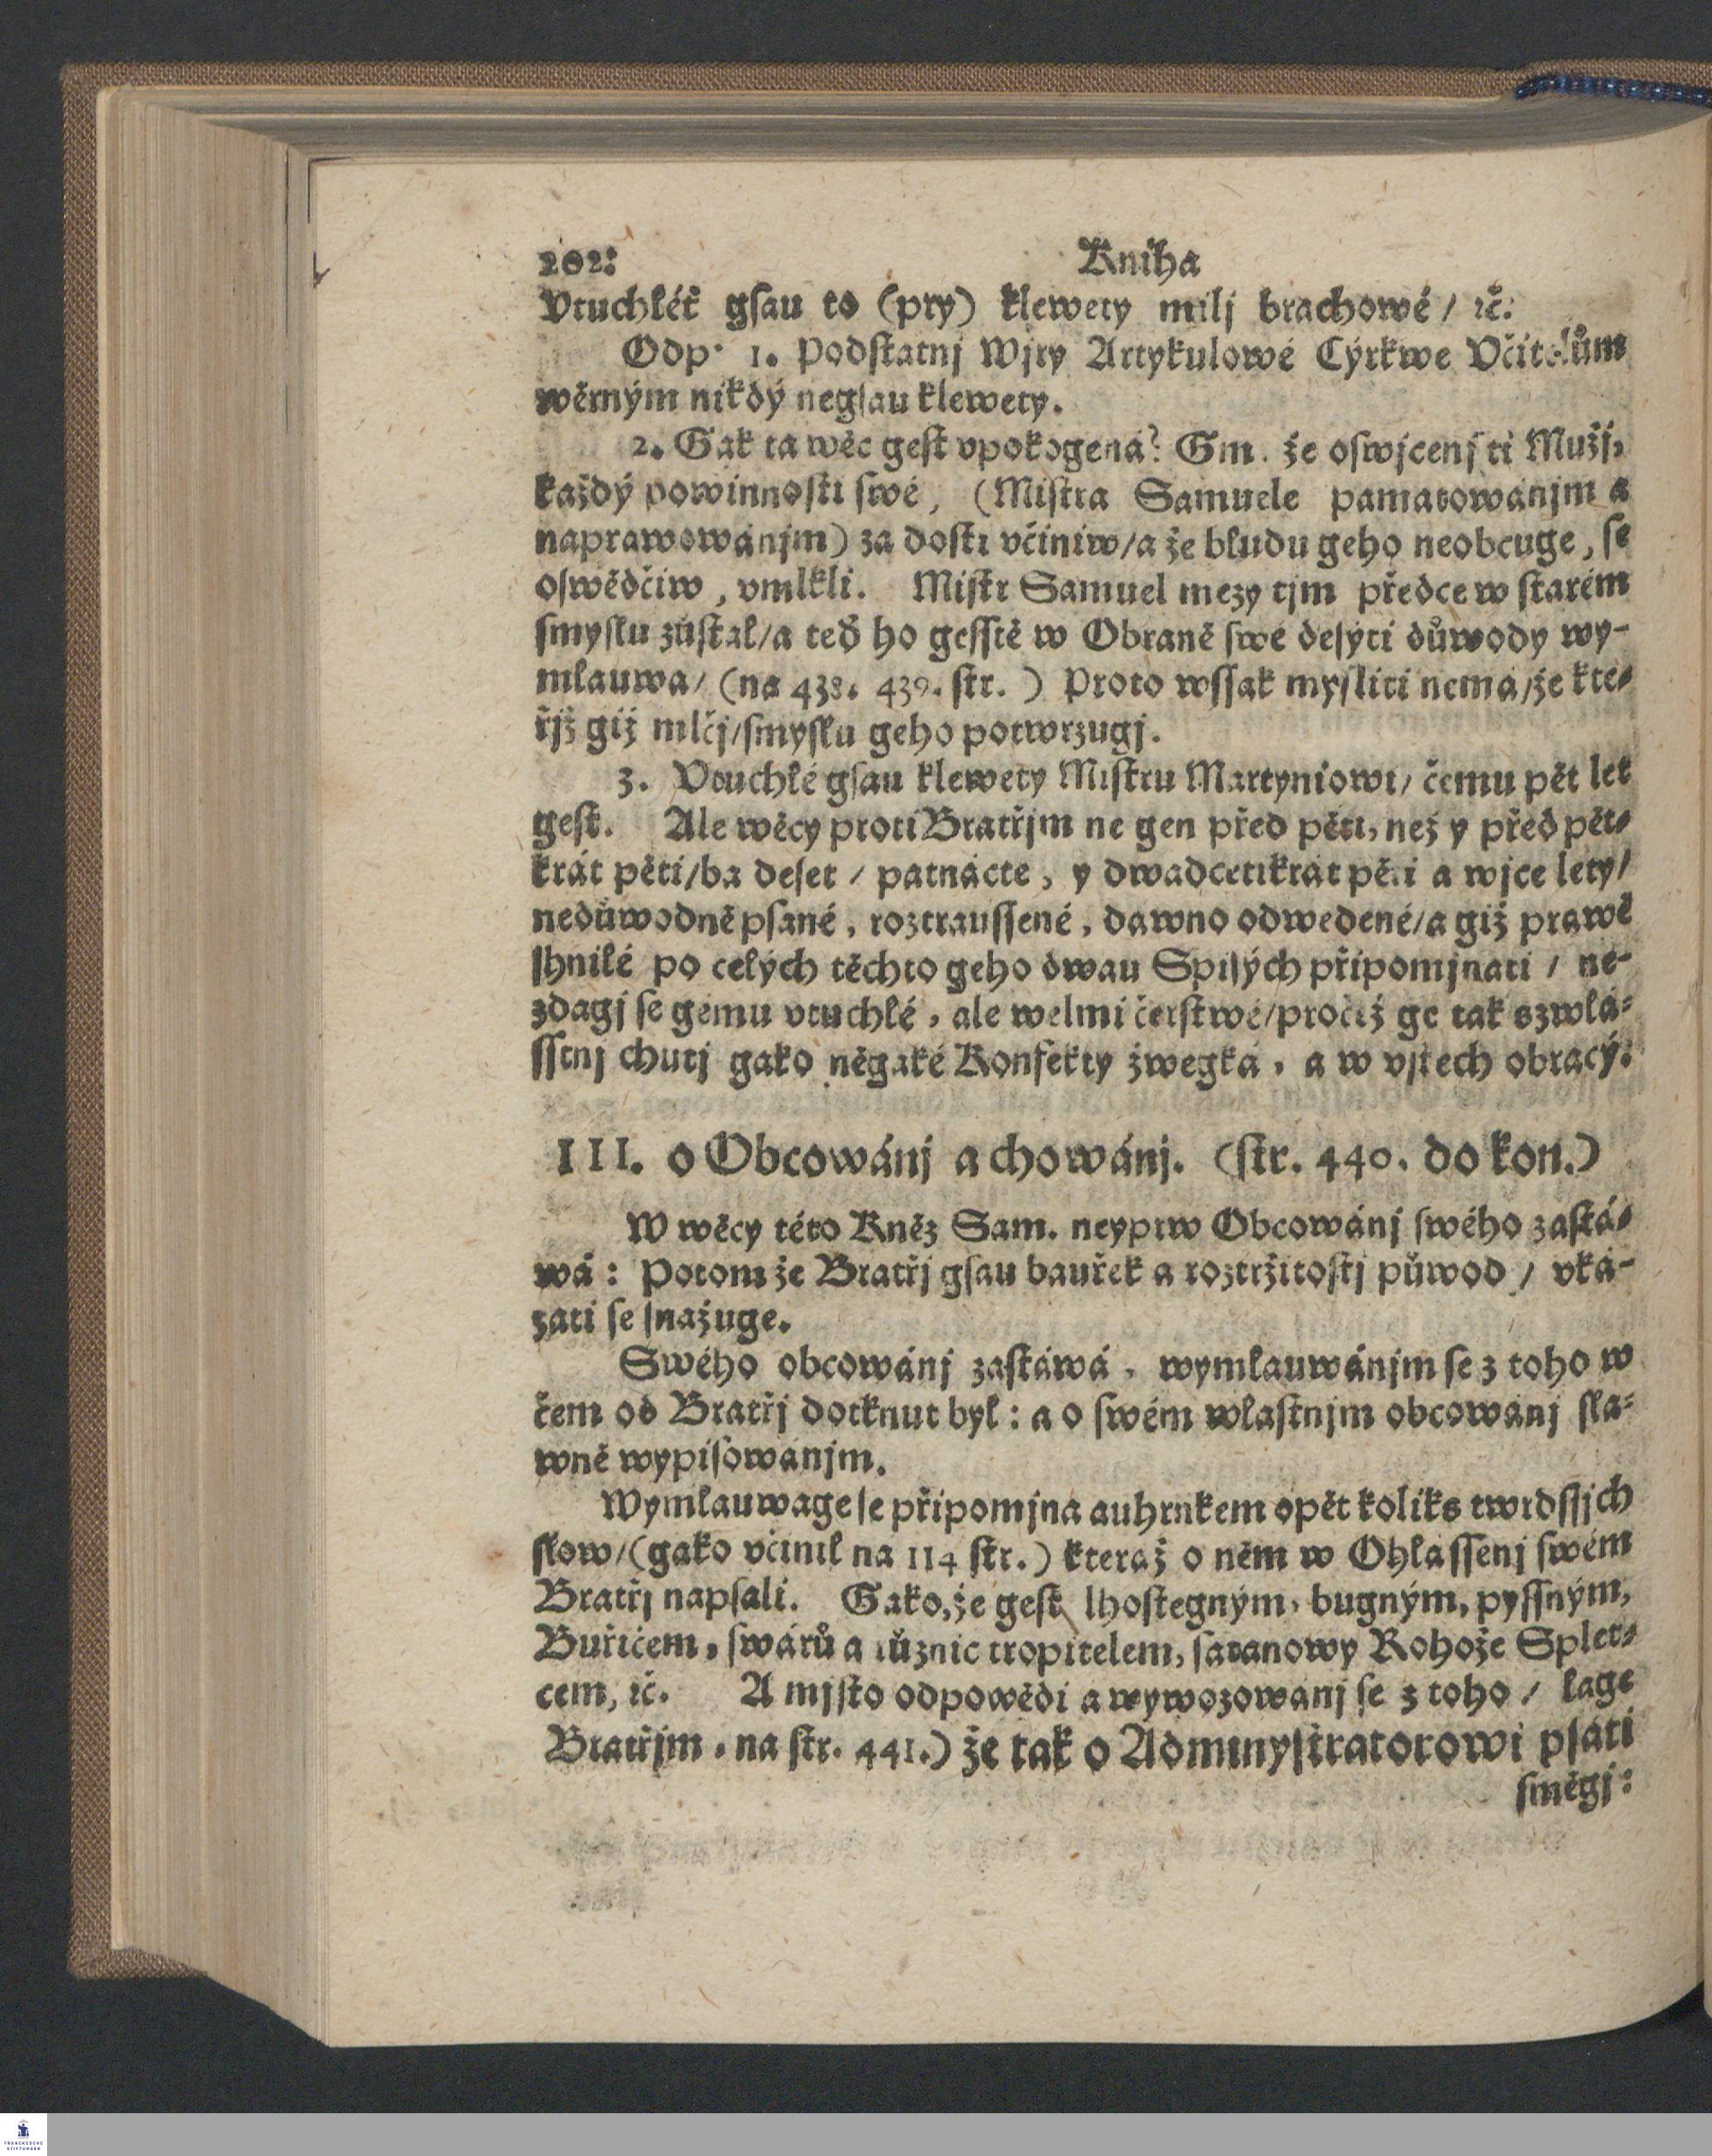 202: Kniha
Vtuchléť gſau to (pry) klewety milj brachowé / ꝛč:
Odp. 1. Podſtatnj Wjry Artykulowé Cýrkwe Včitelům
wěrným nikdý negſau klewety.
2. Gak ta wěc geſt vpokogená? Gm. že oſwjcenj ti Mužj,
každý powinnoſti ſwé, (Miſtra Samuele pamatowánjm a
naprawowánjm) za doſti včiniw/a že bludu geho neobcuge, ſe
oſwědčiw, vmlkli. Miſtr Samuel mezy tjm předce w ſtarém
ſmyſlu zůſtal/a teď ho geſſtě w Obraně ſwé deſýti důwody wy-
mlauwa/ (na 438. 439. ſtr.) Proto wſſak myſliti nemá/že kte-
řjž giž mlčj/ſmyſlu geho potwrzugj.
3. Vtuchlé gſau klewety Miſtru Martyniowi/ čemu pět let
geſt. Ale wěcy proti Bratřjm ne gen před pěti, než y před pět-
krát pěti/ba deſet / patnácte, y dwadcetikrát pěti a wjce lety/
nedůwodně pſané, roztrauſſené, dawno odwedené/a giž prawě
ſhnilé po celých těchto geho dwau Spiſých připomjnati / ne-
zdagj ſe gemu vtuchlé, ale welmi čerſtwé/pročež ge tak s zwlá-
ſſtnj chutj gako něgaké Konfekty žwegká, a w vſtech obracý.
III. o Obcowánj a chowánj. (ſtr. 440. do kon.)
W wěcy této Kněz Sam. neyprw Obcowánj ſwého zaſtá-
wá: Potom že Bratřj gſau bauřek a roztržitoſtj půwod / vká-
zati ſe ſnažuge.
Swého obcowánj zaſtáwá, wymlauwánjm ſe z toho w
čem od Bratřj dotknut byl: a o ſwém wlaſtnjm obcowánj ſla-
wně wypiſowánjm.
Wymlauwage ſe připomjna auhrnkem opět koliks twrdſſjch
ſlow/(gako včinil na 114 ſtr.) kteraž o něm w Ohláſſenj ſwém
Bratřj napſali. Gako, že geſt lhoſtegným, bugným, pyſſným,
Buřičem, ſwárů a různic tropitelem, ſatanowy Rohože Splet-
cem, ꝛč. A mjſto odpowědi a wywozowánj ſe z toho / lage
Bratřjm, na ſtr. 441.) že tak o Adminyſtratorowi pſáti
ſmějgj: